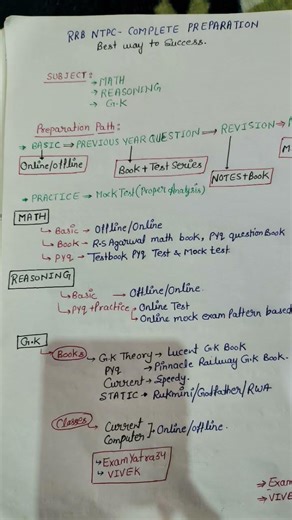 RRB NTPC - COMPLETE PREPARATION
Best way to Success.
SUBJECT:
→ MATH
→ REASONING
→ G.K
Preparation Path:
→ BASIC ⇒ PREVIOUS YEAR QUESTION ⇒ REVISION ⇒
Online/Offline
Book + Test Series
NOTES + Book
→ PRACTICE → Mock Test (Proper Analysis)
MATH
↳ Basic - Offline/Online
↳ Book - R.S Agarwal math book, PYQ question Book
↳ PYQ - Testbook PYQ Test & Mock test
REASONING
↳ Basic → Offline/Online.
↳ PYQ + Practice ↳ Online Test
↳ Online mock exam Pattern based
G.K
↳ Books ↳ G.K Theory → Lucent G.K Book
PYQ → Pinnacle Railway G.K Book.
Current → Speedy.
STATIC → Rukmini/Godfather/RWA
Classes ↳ Current
Computer } Online/offline.
↳ ExamYatra34
↳ VIVEK
⇒ Exam
⇒ VIVE